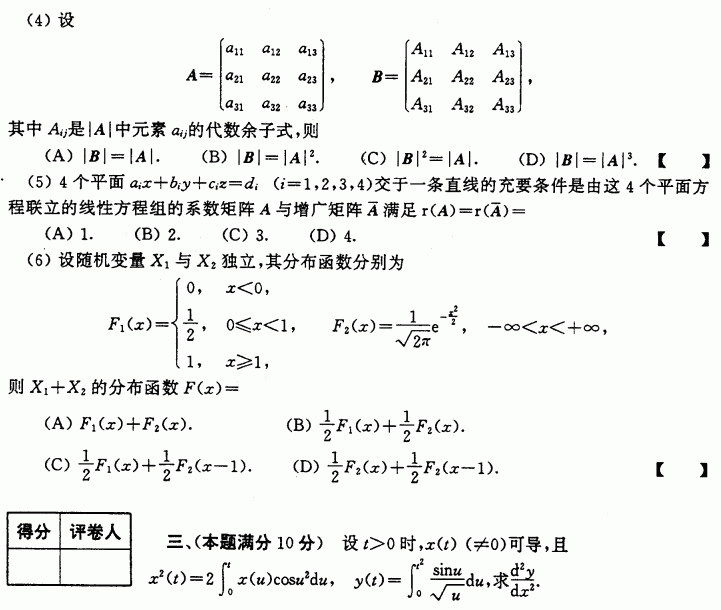 (4) 设
A = [a₁₁ a₁₂ a₁₃; a₂₁ a₂₂ a₂₃; a₃₁ a₃₂ a₃₃], B = [A₁₁ A₁₂ A₁₃; A₂₁ A₂₂ A₂₃; A₃₁ A₃₂ A₃₃],
其中 Aᵢⱼ是|A|中元素 aᵢⱼ的代数余子式,则
(A) |B|=|A|. (B) |B|=|A|². (C) |B|²=|A|. (D) |B|=|A|³. 【 】
(5) 4 个平面 aᵢx+bᵢy+cᵢz=dᵢ (i=1,2,3,4)交于一条直线的充要条件是由这 4 个平面方
程联立的线性方程组的系数矩阵 A 与增广矩阵 A̅ 满足 r(A)=r(A̅)=
(A) 1. (B) 2. (C) 3. (D) 4. 【 】
(6) 设随机变量 X₁ 与 X₂ 独立,其分布函数分别为
F₁(x)={0, x<0, 1/2, 0≤x<1, 1, x≥1, F₂(x)=1/√(2π) e^(-x²/2), -∞<x<+∞,
则 X₁+X₂ 的分布函数 F(x)=
(A) F₁(x)+F₂(x). (B) 1/2 F₁(x)+1/2 F₂(x).
(C) 1/2 F₁(x)+1/2 F₂(x-1). (D) 1/2 F₂(x)+1/2 F₂(x-1). 【 】
得分 评卷人
三、(本题满分 10 分) 设 t>0 时,x(t) (≠0)可导,且
x²(t)=2∫₀ᵗ x(u)cosu²du, y(t)=∫₀^(t²) sinu/√u du,求 d²y/dx².